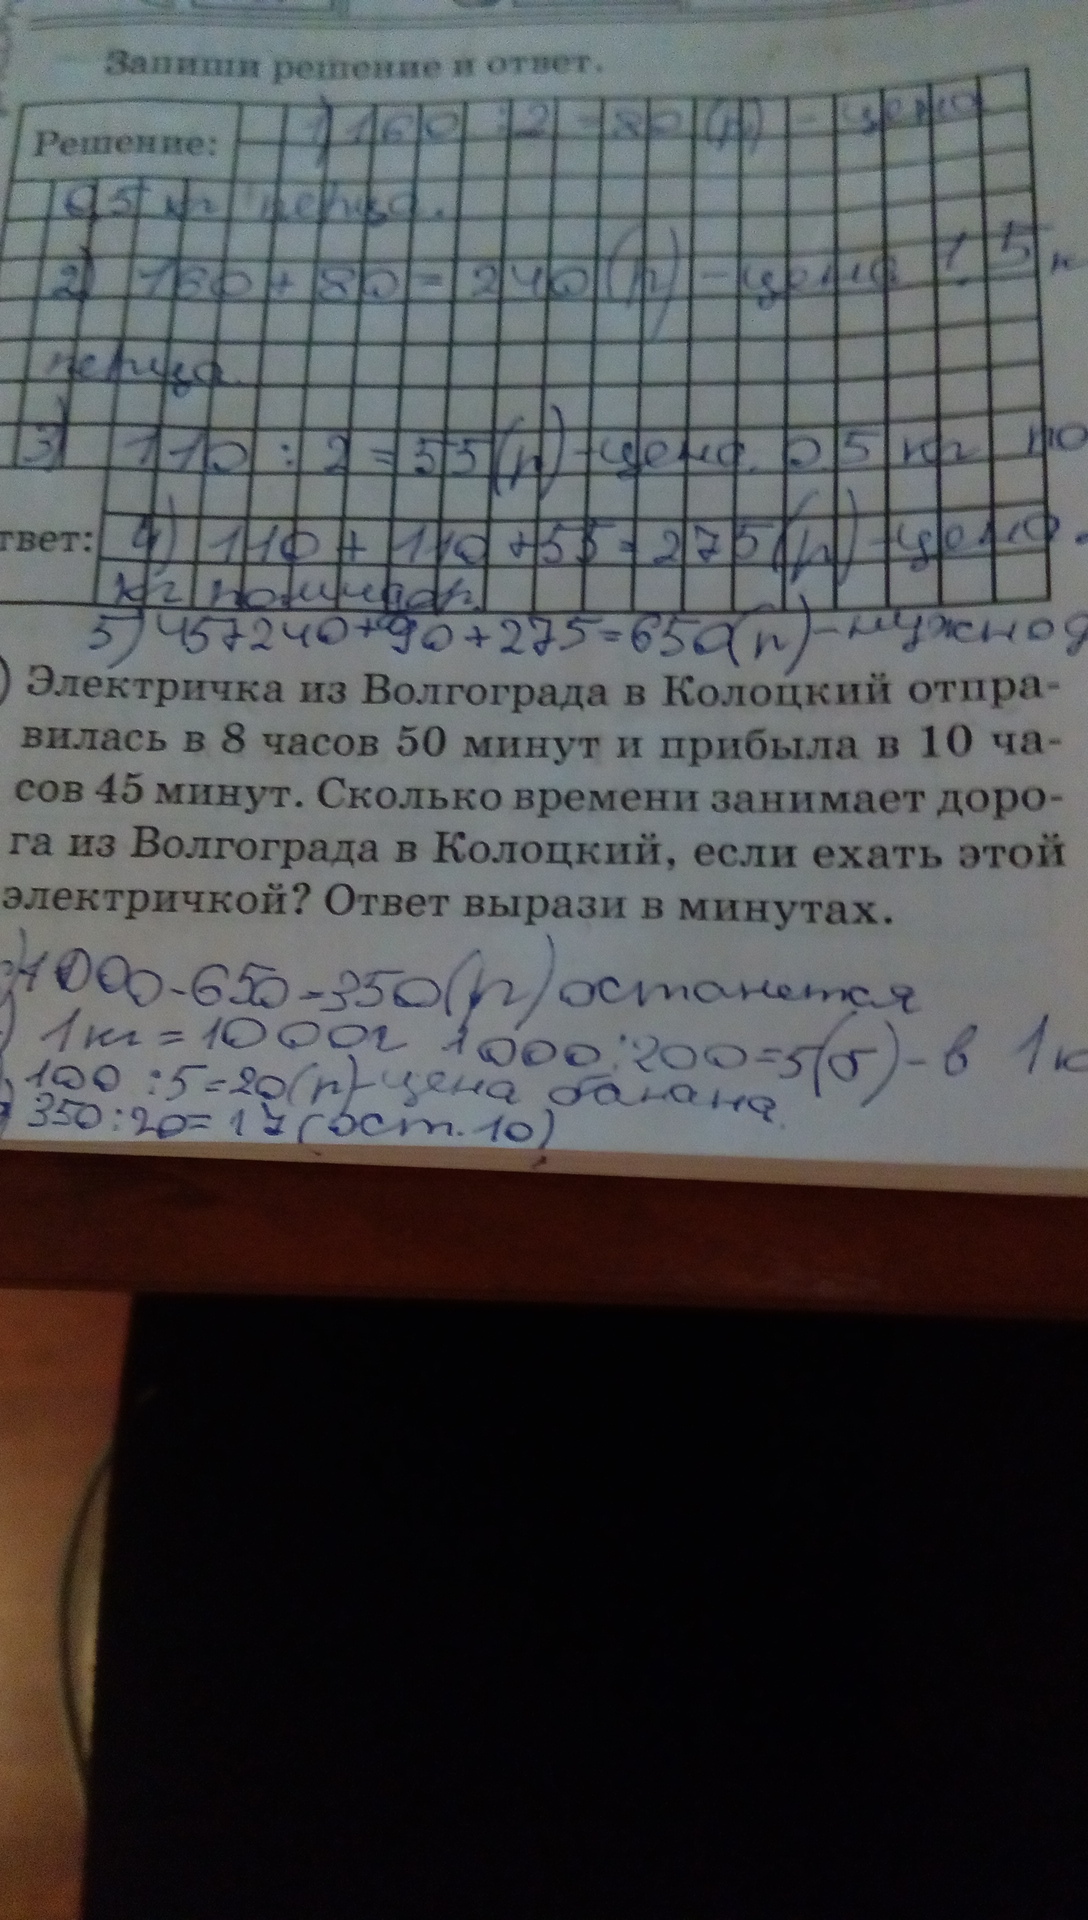 Запиши решение и ответ.
Решение: 1) 160 : 2 = 80 (р) - цена
0,5 кг перца.
2) 160 + 80 = 240 (р) - цена 1,5 к
перца.
3) 110 : 2 = 55 (р) - цена 0,5 кг по
твет: 4) 110 + 110 + 55 = 275 (р) - цена
кг помидор.
5) 45+240+90+275=650(р)-нужно
) Электричка из Волгограда в Колоцкий отпра-
вилась в 8 часов 50 минут и прибыла в 10 ча-
сов 45 минут. Сколько времени занимает доро-
га из Волгограда в Колоцкий, если ехать этой
электричкой? Ответ вырази в минутах.
) 1000-650=350(р) останется
) 1кг = 1000г 1000:200=5(б)-в 1к
) 100 :5=20(р)-цена банана.
350:20=17(ост.10)